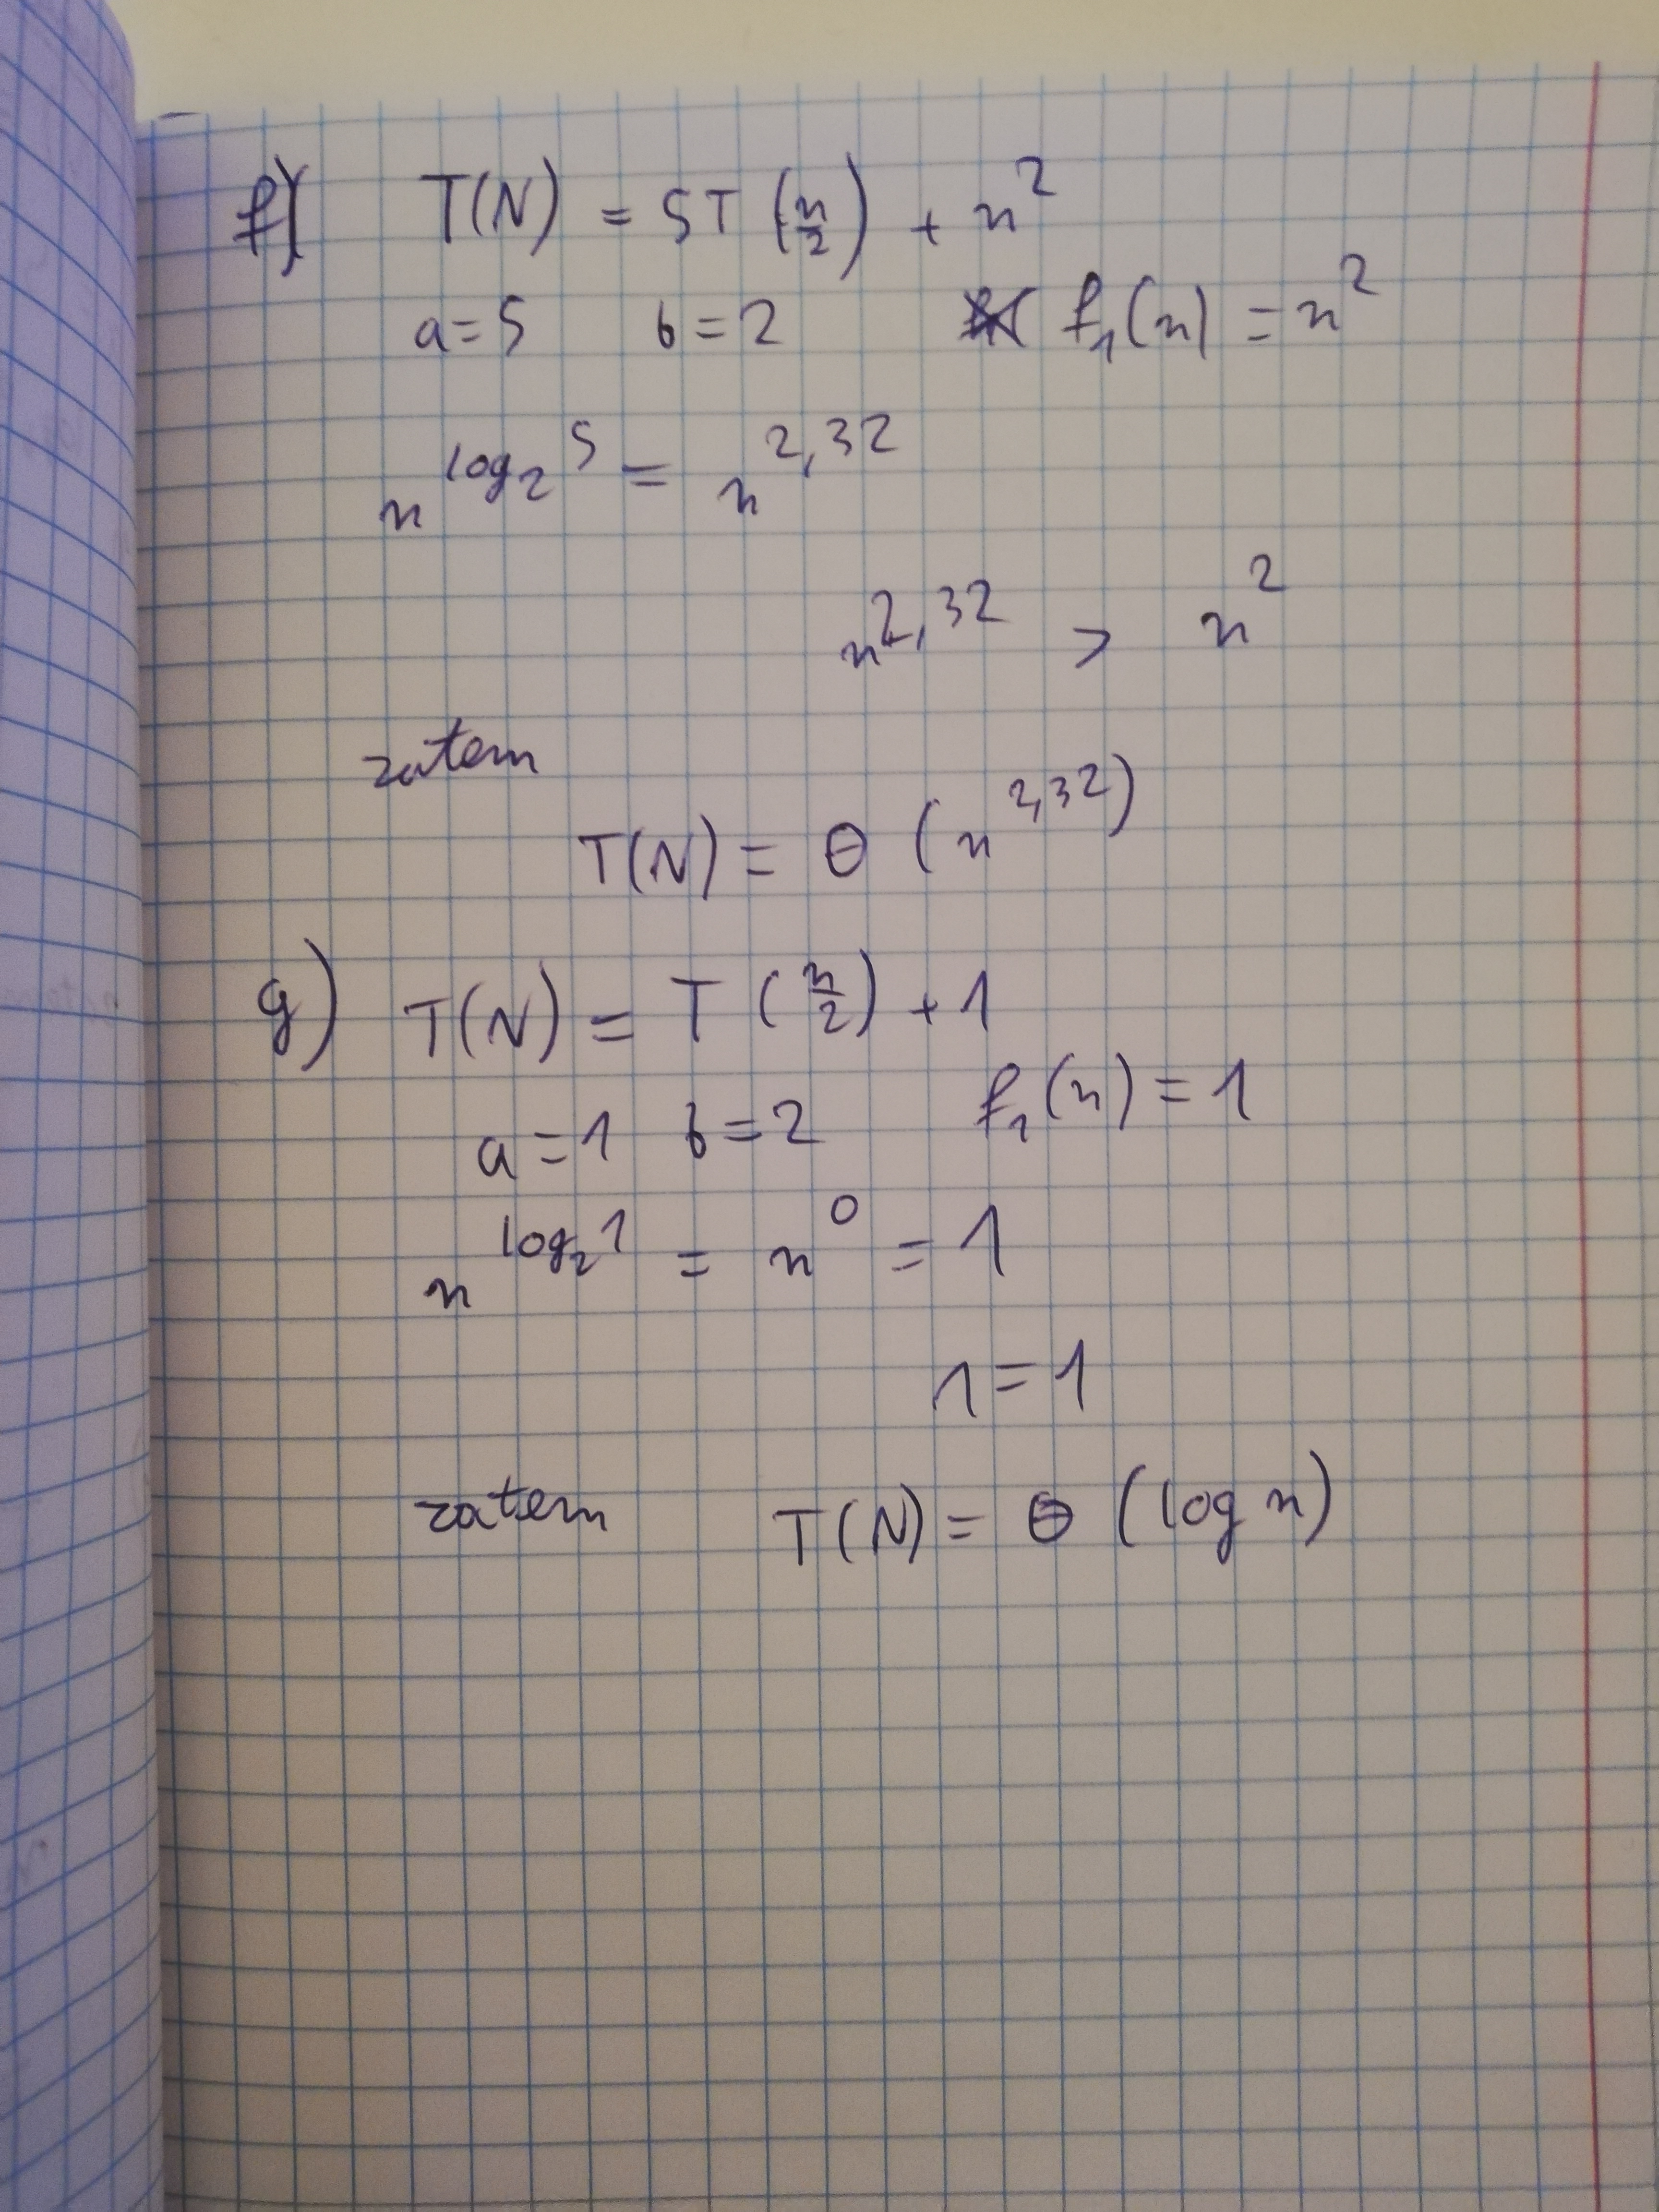 f) T(N) = 5T (n/2) + n²
a=5 b=2 f₁(n) = n²
n^log₂5 = n^2,32
n^2,32 > n²
zatem
T(N) = Θ (n^2,32)
g) T(N) = T (n/2) + 1
a=1 b=2 f₁(n) = 1
n^log₂1 = n^0 = 1
1=1
zatem T(N) = Θ (log n)